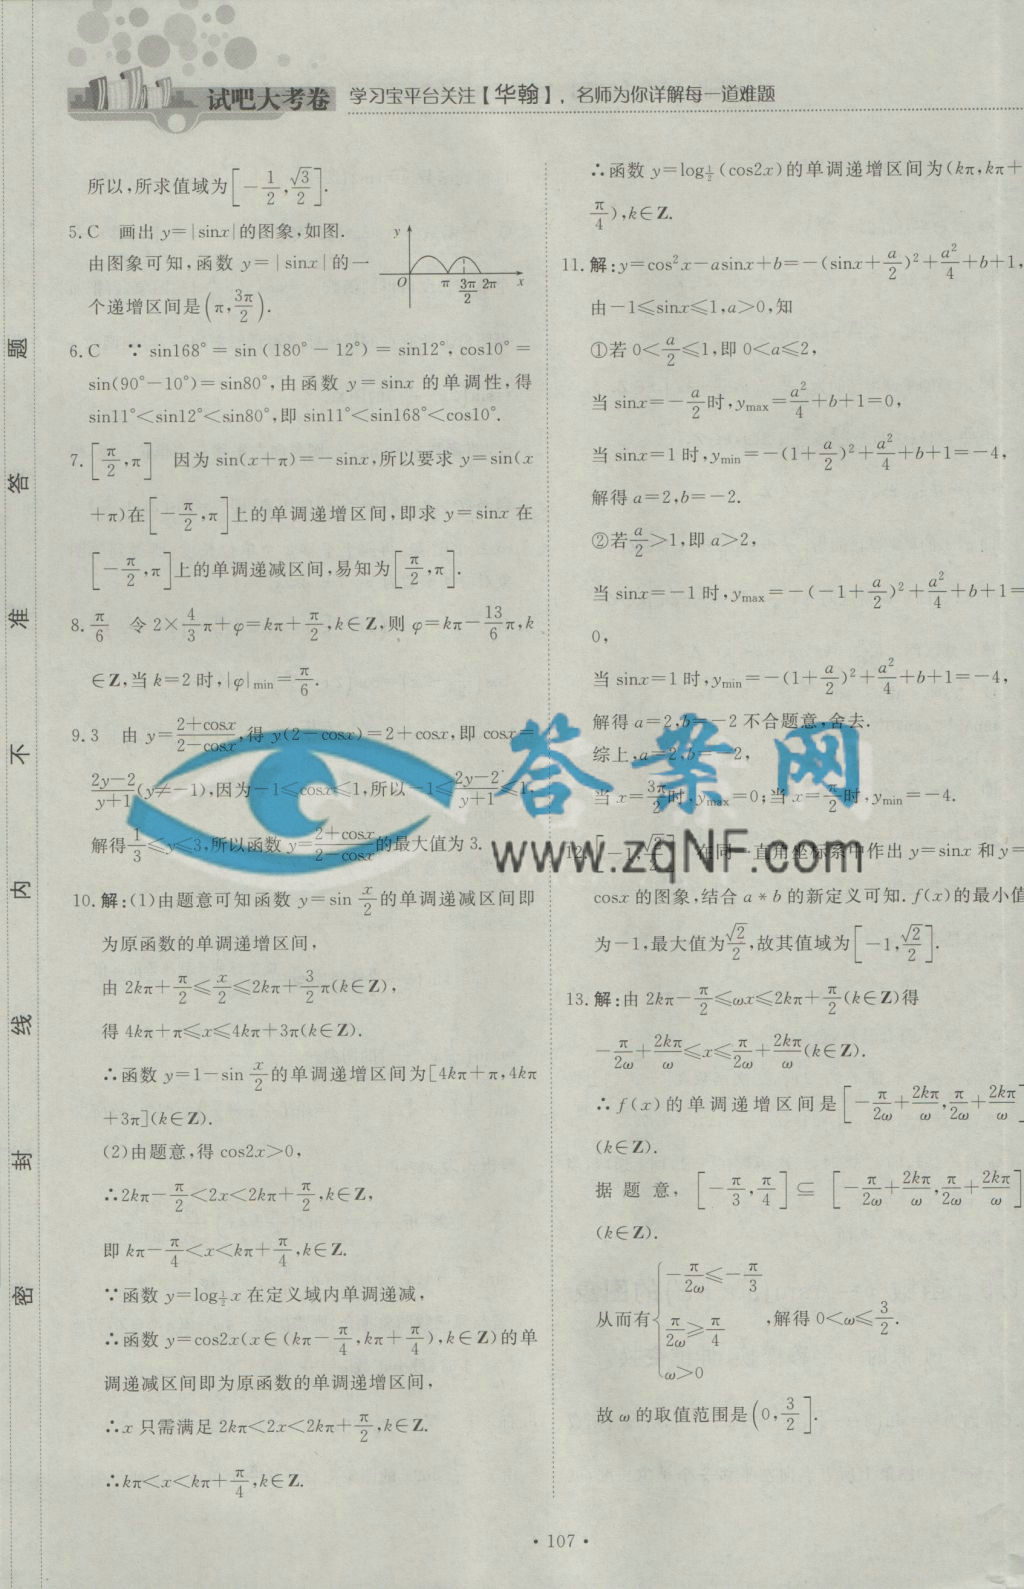 试吧大考卷 学习宝平台关注【华翰】，名师为你详解每一道难题
所以,所求值域为[-1/2,√3/2].
5.C 画出 y=|sinx|的图象,如图.
由图象可知,函数 y=|sinx|的一
个递增区间是(π,3π/2).
y O π 3π/2 2π x
6.C ∵ sin168°=sin(180°-12°)=sin12°,cos10°=
sin(90°-10°)=sin80°,由函数 y=sinx 的单调性,得
sin11°<sin12°<sin80°,即 sin11°<sin168°<cos10°.
7.[π/2,π] 因为 sin(x+π)=-sinx,所以要求 y=sin(x
+π)在[-π/2,π]上的单调递增区间,即求 y=sinx 在
[-π/2,π]上的单调递减区间,易知为[π/2,π].
8.π/6 令 2×4/3π+φ=kπ+π/2,k∈Z,则 φ=kπ-13/6π,k
∈Z,当 k=2 时,|φ|min=π/6.
9.3 由 y=(2+cosx)/(2-cosx),得 y(2-cosx)=2+cosx,即 cosx=
(2y-2)/(y+1)(y≠-1),因为-1≤cosx≤1,所以-1≤(2y-2)/(y+1)≤1,
解得1/3≤y≤3,所以函数 y=(2+cosx)/(2-cosx)的最大值为 3.
10.解:(1)由题意可知函数 y=sin x/2 的单调递减区间即
为原函数的单调递增区间,
由 2kπ+π/2≤x/2≤2kπ+3/2π(k∈Z),
得 4kπ+π≤x≤4kπ+3π(k∈Z).
∴函数 y=1-sin x/2 的单调递增区间为[4kπ+π,4kπ
+3π](k∈Z).
(2)由题意,得 cos2x>0,
∴2kπ-π/2<2x<2kπ+π/2,k∈Z,
即 kπ-π/4<x<kπ+π/4,k∈Z.
∵函数 y=log1/2 x 在定义域内单调递减,
∴函数 y=cos2x(x∈(kπ-π/4,kπ+π/4),k∈Z)的单
调递减区间即为原函数的单调递增区间,
∴x 只需满足 2kπ<2x<2kπ+π/2,k∈Z.
∴kπ<x<kπ+π/4,k∈Z.
∴函数 y=log1/2(cos2x)的单调递增区间为(kπ,kπ+
π/4),k∈Z.
11.解:y=cos²x-asinx+b=-(sinx+a/2)²+a²/4+b+1,
由-1≤sinx≤1,a>0,知
①若 0<a/2≤1,即 0<a≤2,
当 sinx=-a/2时,ymax=a²/4+b+1=0,
当 sinx=1 时,ymin=-(1+a/2)²+a²/4+b+1=-4,
解得 a=2,b=-2.
②若a/2>1,即 a>2,
当 sinx=-1 时,ymax=-(-1+a/2)²+a²/4+b+1=
0,
当 sinx=1 时,ymin=-(1+a/2)²+a²/4+b+1=-4,
解得 a=2,b=-2 不合题意,舍去.
综上,a=2,b=-2,
当 x=3π/2时,ymax=0;当 x=π/2时,ymin=-4.
12.[-1,√2/2] 在同一直角坐标系中作出 y=sinx 和 y=
cosx 的图象,结合 a*b 的新定义可知.f(x)的最小值
为-1,最大值为√2/2,故其值域为[-1,√2/2].
13.解:由 2kπ-π/2≤ωx≤2kπ+π/2(k∈Z)得
-π/2ω+2kπ/ω≤x≤π/2ω+2kπ/ω(k∈Z).
∴f(x)的单调递增区间是[-π/2ω+2kπ/ω,π/2ω+2kπ/ω]
(k∈Z).
据题意,[-π/3,π/4]⊆[-π/2ω+2kπ/ω,π/2ω+2kπ/ω]
(k∈Z).
从而有{-π/2ω≤-π/3
π/2ω≥π/4
ω>0
,解得 0<ω≤3/2.
故 ω 的取值范围是(0,3/2].
题 答 准 不 内 线 封 密
答案网
www.zqNF.com
www.zqNF.com
• 107 •